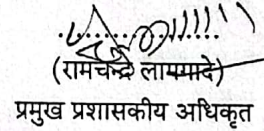 (रामचन्द्र लामगादे)
प्रमुख प्रशासकीय अधिकृत